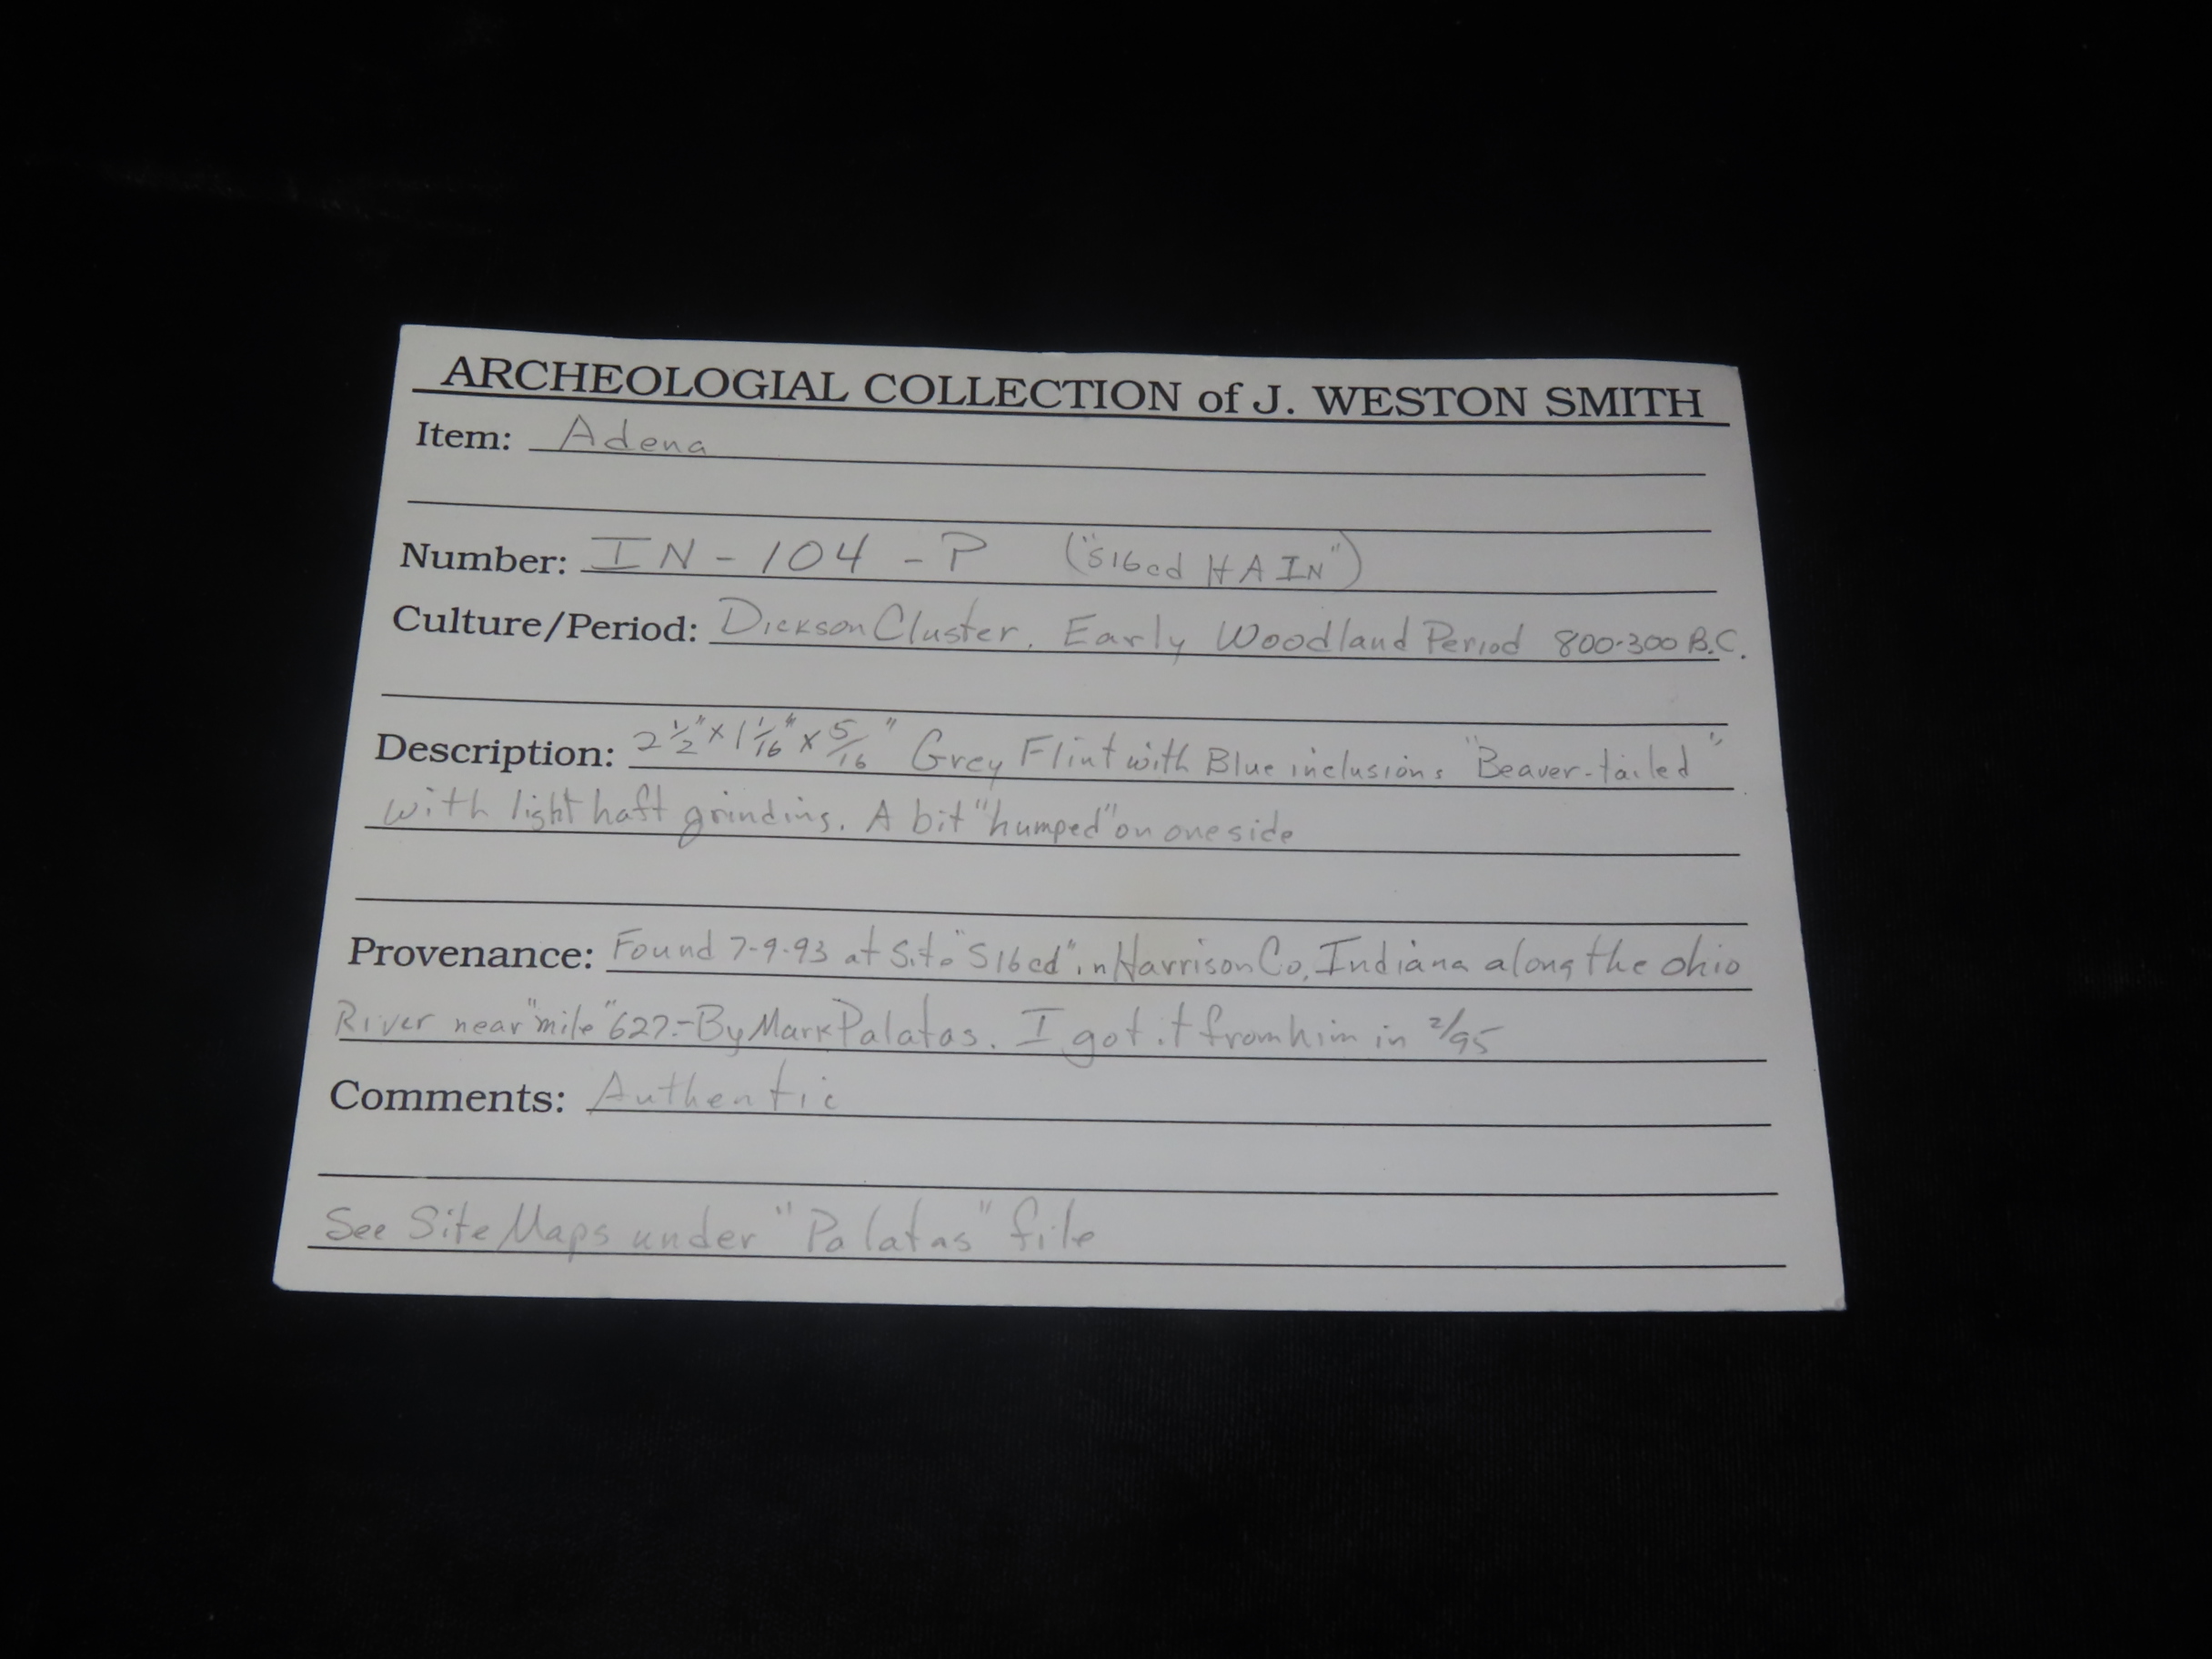 ARCHEOLOGIAL COLLECTION of J. WESTON SMITH
Item: Adena
Number: IN-104-P ("S16cd HA IN")
Culture/Period: Dickson Cluster. Early Woodland Period 800-300 B.C.
Description: 2 1/2" x 1 1/16" x 5/16" Grey Flint with Blue inclusions "Beaver-tailed"
with light haft grinding. A bit "humped" on one side
Provenance: Found 7-9-93 at Site "S16cd" in Harrison Co, Indiana along the Ohio
River near "mile" 627-By Mark Palatas. I got it from him in 2/95
Comments: Authentic
See Site Maps under "Palatas" file